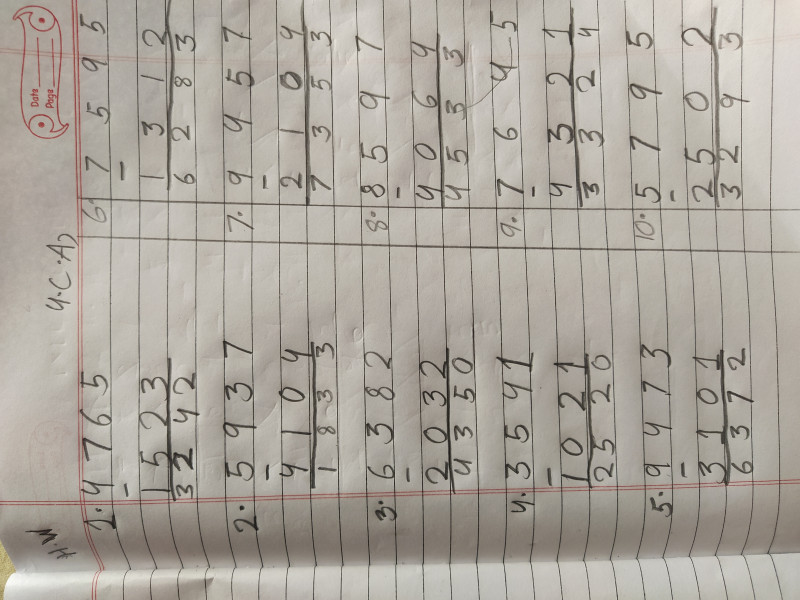 Date
Page
H.W 4.C.A)
1. 4765 6. 7595
- -
1523 1312
3242 6283
2. 5937 7. 9457
- -
4104 2104
1833 7353
3. 6382 8. 8597
- -
2032 4064
4350 4533
4. 3541 9. 7645
- -
1021 4321
2520 3324
5. 9473 10. 5795
- -
3101 2502
6372 3293